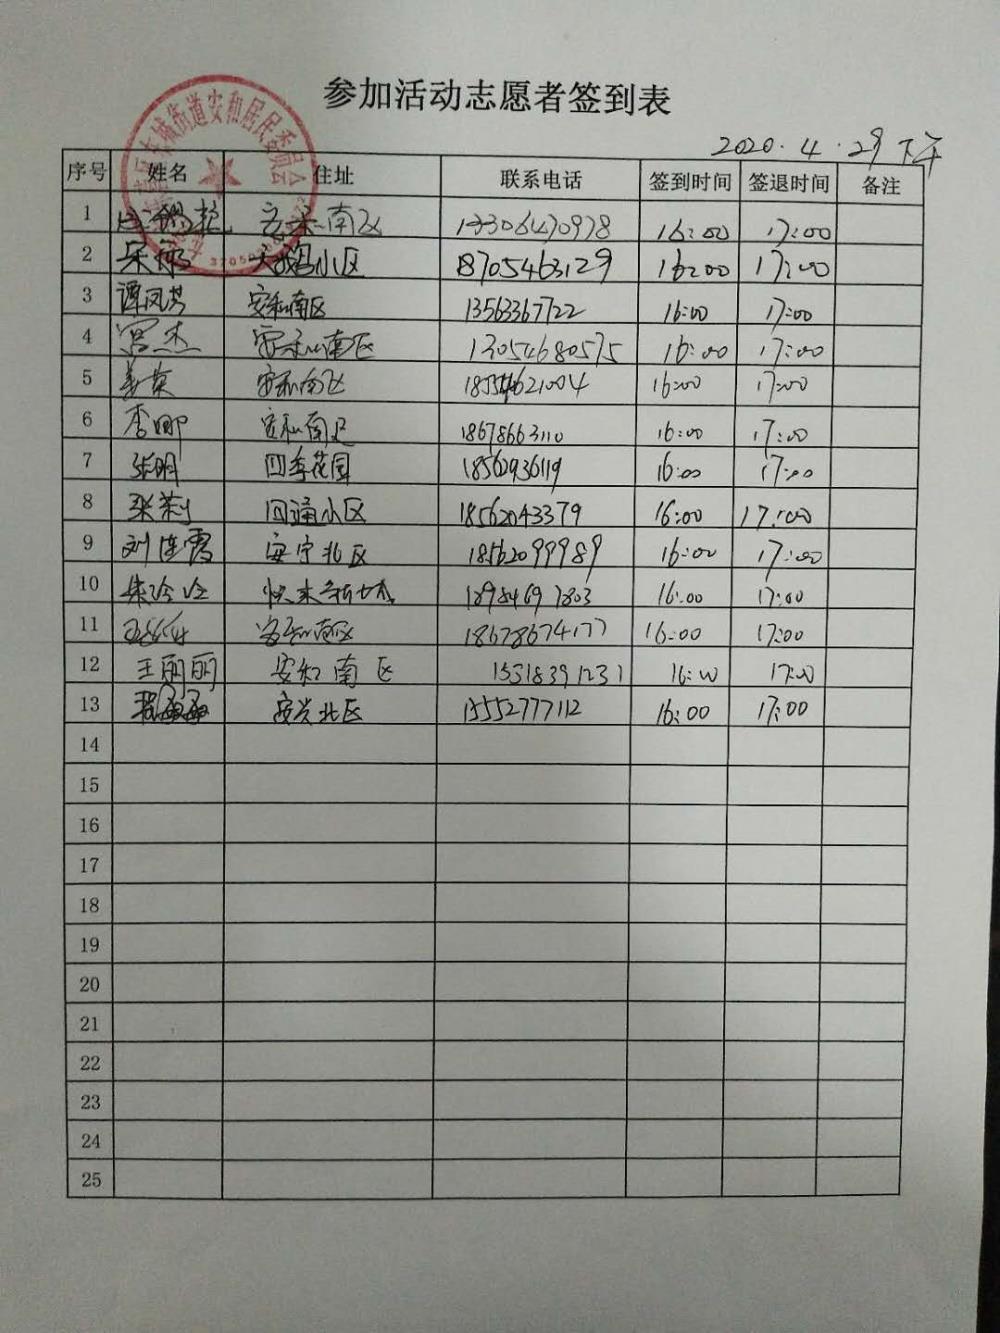 参加活动志愿者签到表
2020.4.29 下午
序号 姓名 住址 联系电话 签到时间 签退时间 备注
1 南区 13306470978 16:00 17:00
2 天鹅小区 18705463129 16:00 17:00
3 谭凤芳 安和南区 13563367722 16:00 17:00
4 安和南区 13054680575 16:00 17:00
5 姜英 安和南区 18554621004 16:00 17:00
6 李娜 安和南区 18678663110 16:00 17:00
7 张明 四季花园 18562936119 16:00 17:00
8 张莉 小区 18562043379 16:00 17:00
9 刘连霞 安宁北区 18562099989 16:00 17:00
10 16:00 17:00
11 安和南区 18678674177 16:00 17:00
12 王丽丽 安和南区 15318391231 16:00 17:00
13 安兴北区 15552777112 16:00 17:00
14
15
16
17
18
19
20
21
22
23
24
25